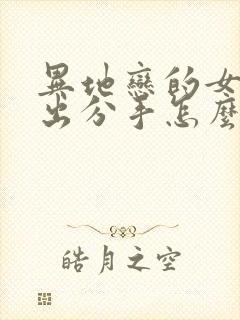 異地戀的女
出分手怎麼
皓月之空